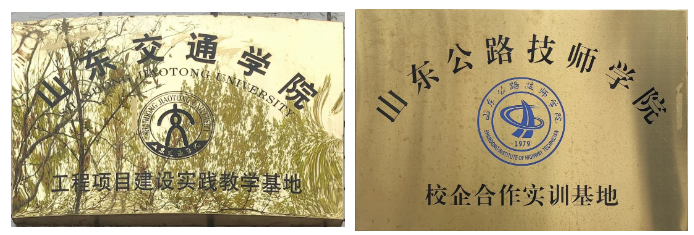 山东交通学院
SHANDONG JIAOTONG UNIVERSITY
工程项目建设实践教学基地
山东公路技师学院
山东公路技师学院
1979
校企合作实训基地